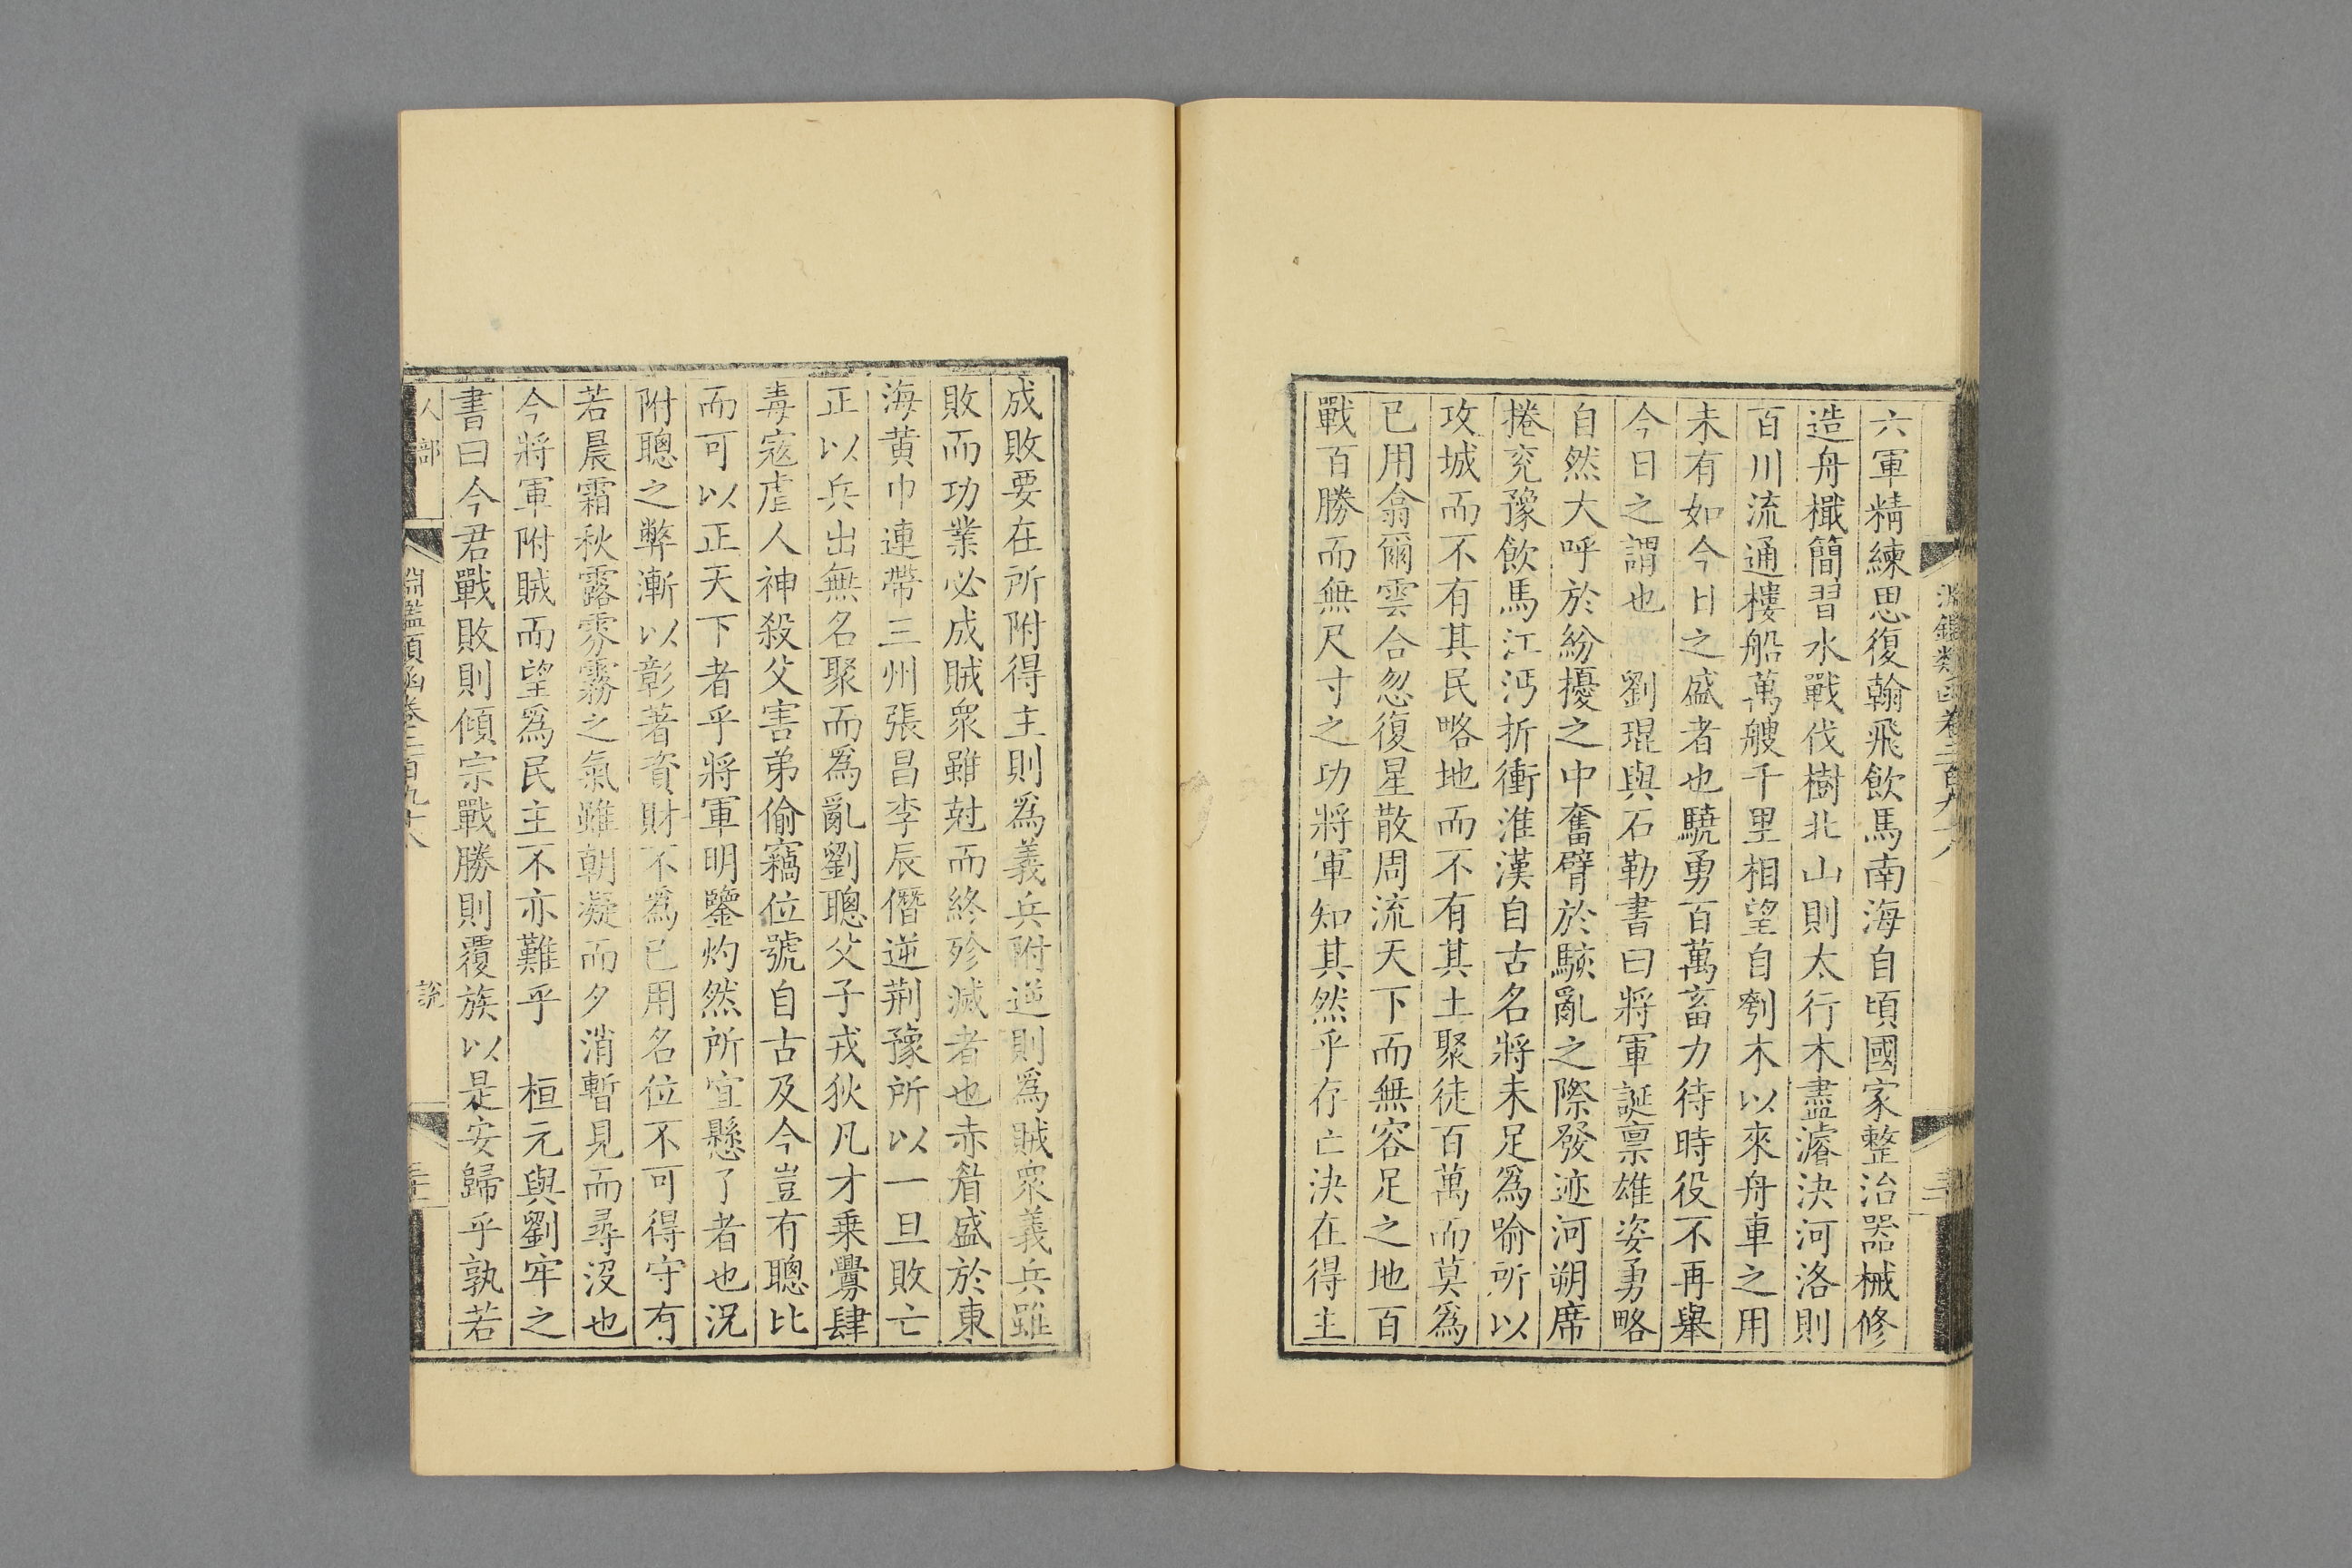 六軍精練思復翰飛飲馬南海自頃國家整治器械修
造舟檝簡習水戰伐樹北山則太行木盡濬決河洛則
百川流通樓船萬艘千里相望自刳木以來舟車之用
未有如今日之盛者也驍勇百萬畜力待時役不再舉
今日之謂也　劉琨與石勒書曰將軍誕禀雄姿勇略
自然大呼於紛擾之中奮臂於駭亂之際發迹河朔席
捲兖豫飲馬江沔折衝淮漢自古名將未足爲喻所以
攻城而不有其民略地而不有其土聚徒百萬而莫爲
已用翕爾雲合忽復星散周流天下而無容足之地百
戰百勝而無尺寸之功將軍知其然乎存亡決在得主
成敗要在所附得主則爲義兵附逆則爲賊衆義兵雖
敗而功業必成賊衆雖尅而終殄滅者也赤眉盛於東
海黄巾連帶三州張昌李辰僭逆荆豫所以一旦敗亡
正以兵出無名聚而爲亂劉聰父子戎狄凡才乗釁肆
毒寇虐人神殺父害弟偷竊位號自古及今豈有聰比
而可以正天下者乎將軍明鑒灼然所宜懸了者也況
附聰之弊漸以彰著資財不爲已用名位不可得守有
若晨霜秋露雰霧之氣雖朝凝而夕消暫見而尋沒也
今將軍附賊而望爲民主不亦難乎　桓元與劉牢之
書曰今君戰敗則傾宗戰勝則覆族以是安歸乎孰若
人部
淵鑑類函卷二百九十八
說